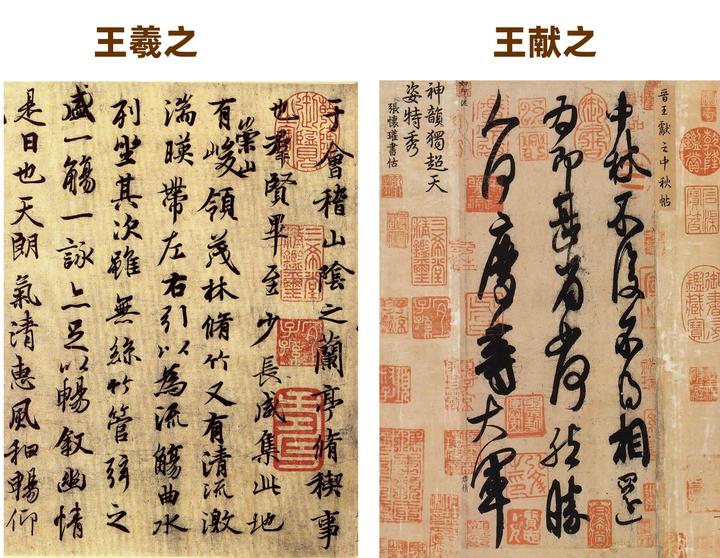 王羲之
王献之
于會稽山陰之蘭亭脩稧事
也羣賢畢至少長咸集此地
有崇山峻領茂林脩竹又有清流激
湍暎帶左右引以為流觴曲水
列坐其次雖無絲竹管弦之
盛一觴一詠亦足以暢敘幽情
是日也天朗氣清惠風和暢仰
晉王獻之中秋帖
中秋不復不得相還
為即甚省如何然勝
人何慶等大軍
神韻獨超天
姿特秀
張懷瓘書估
三希堂精鑑璽